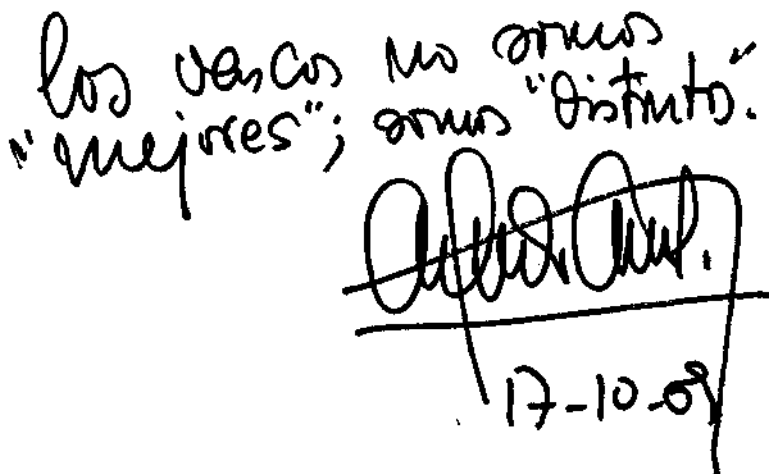 los vascos no somos
"mejores"; somos "distintos".